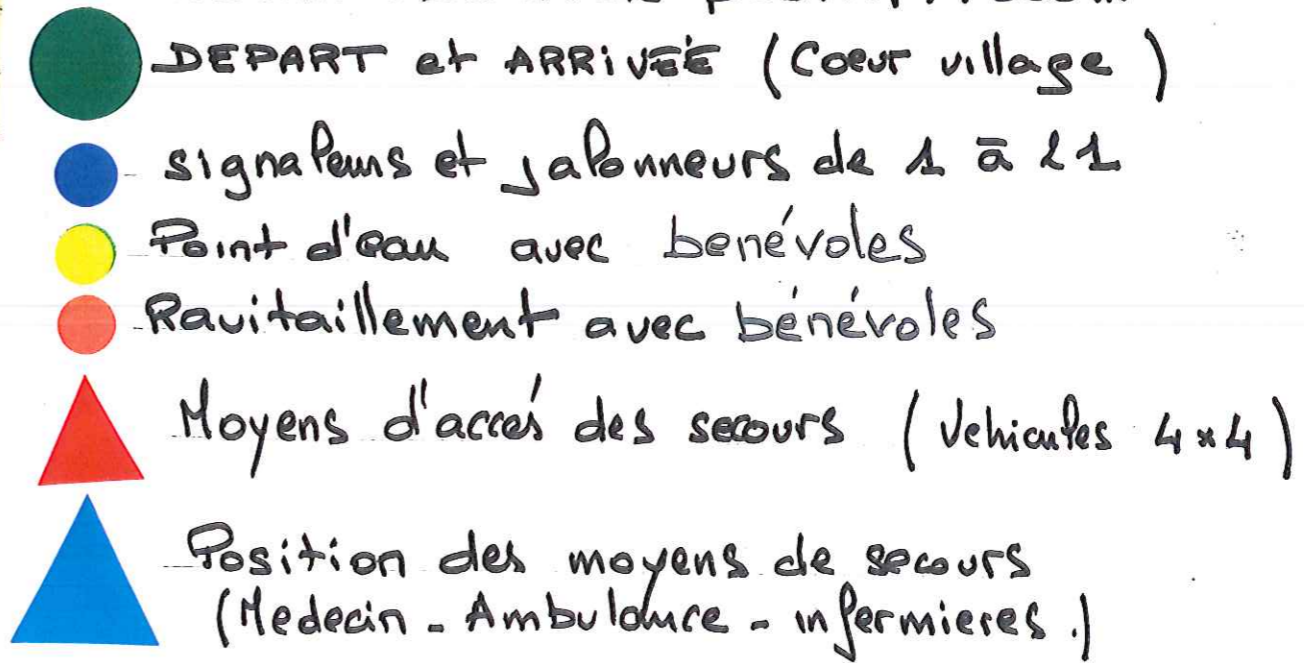 DEPART et ARRIVEE (Coeur village)
signaleurs et jalonneurs de 1 à 21
Point d'eau avec benévoles
Ravitaillement avec bénévoles
Moyens d'accés des secours (Vehicules 4x4)
Position des moyens de secours
(Medecin - Ambulance - infermieres.)